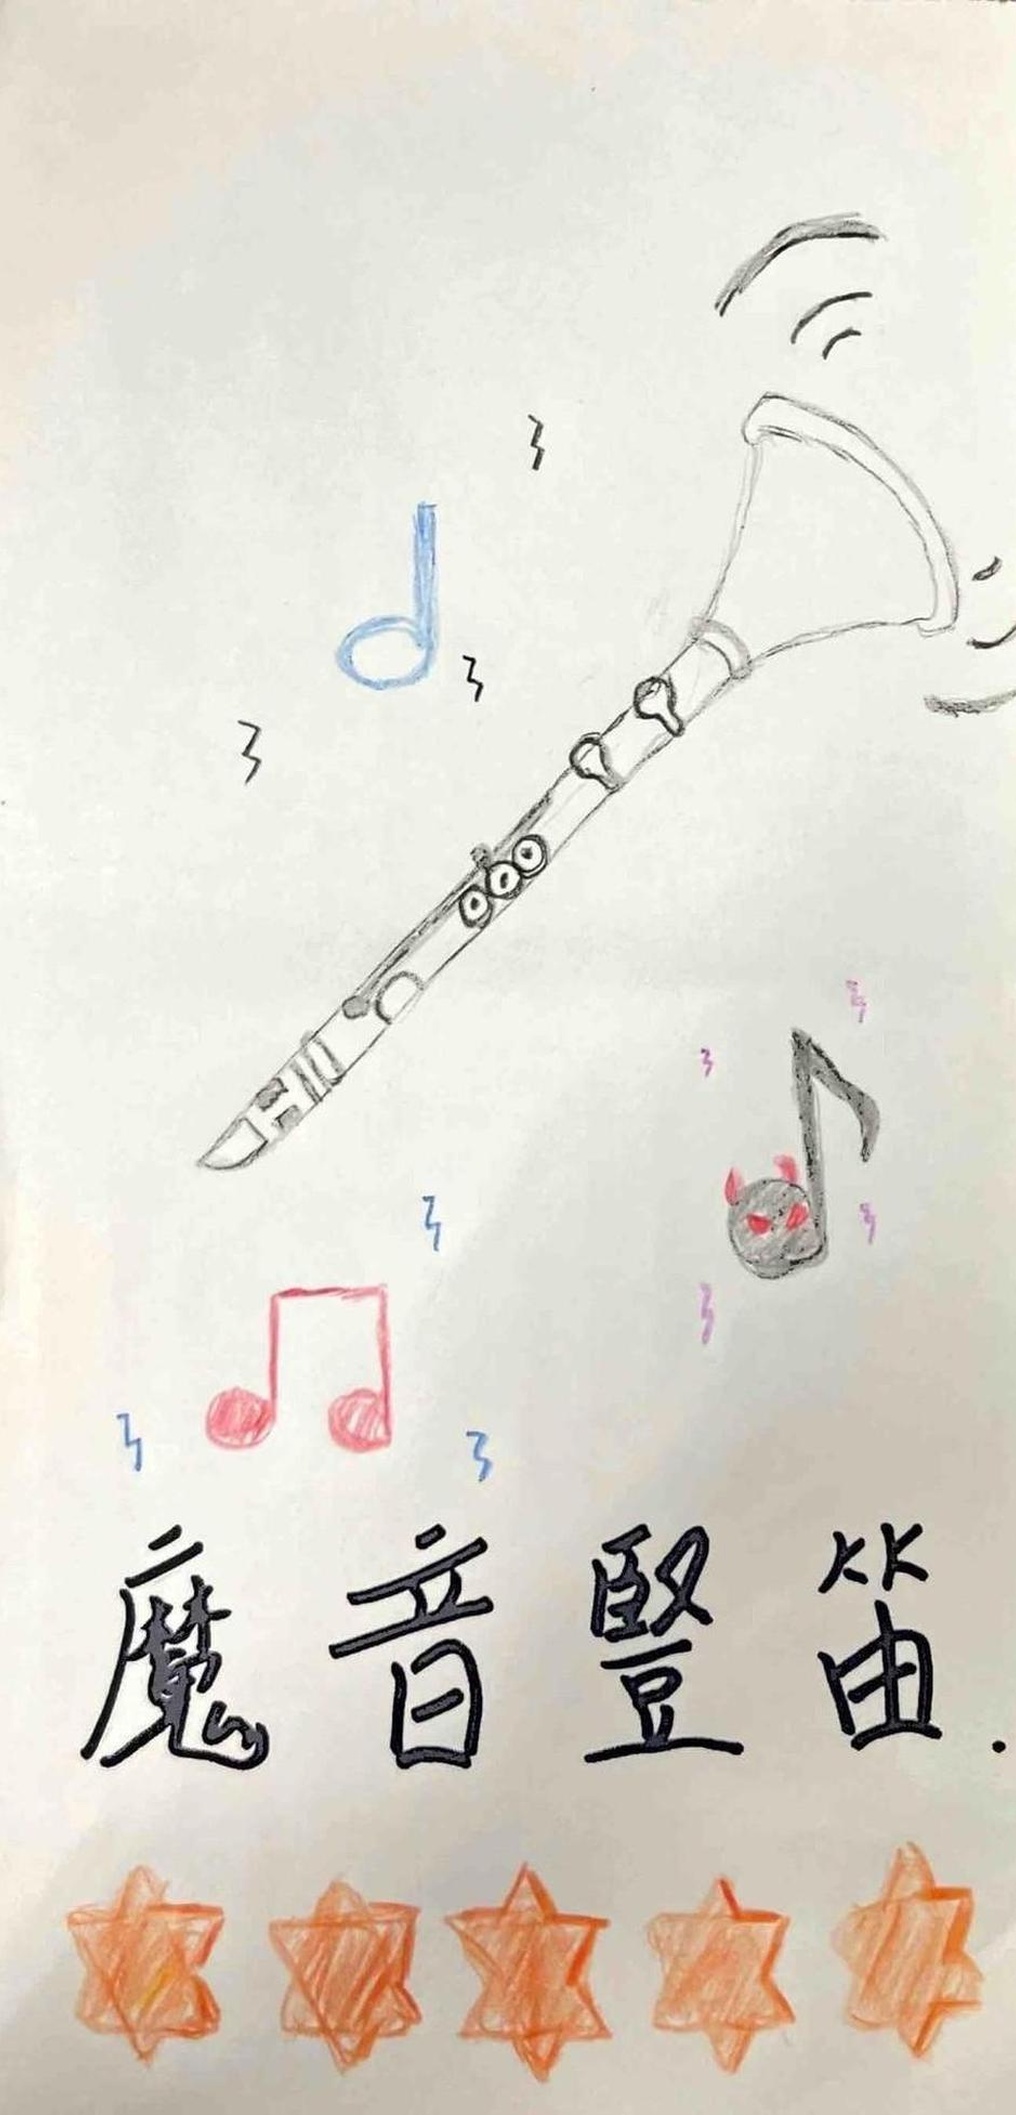 魔音豎笛.